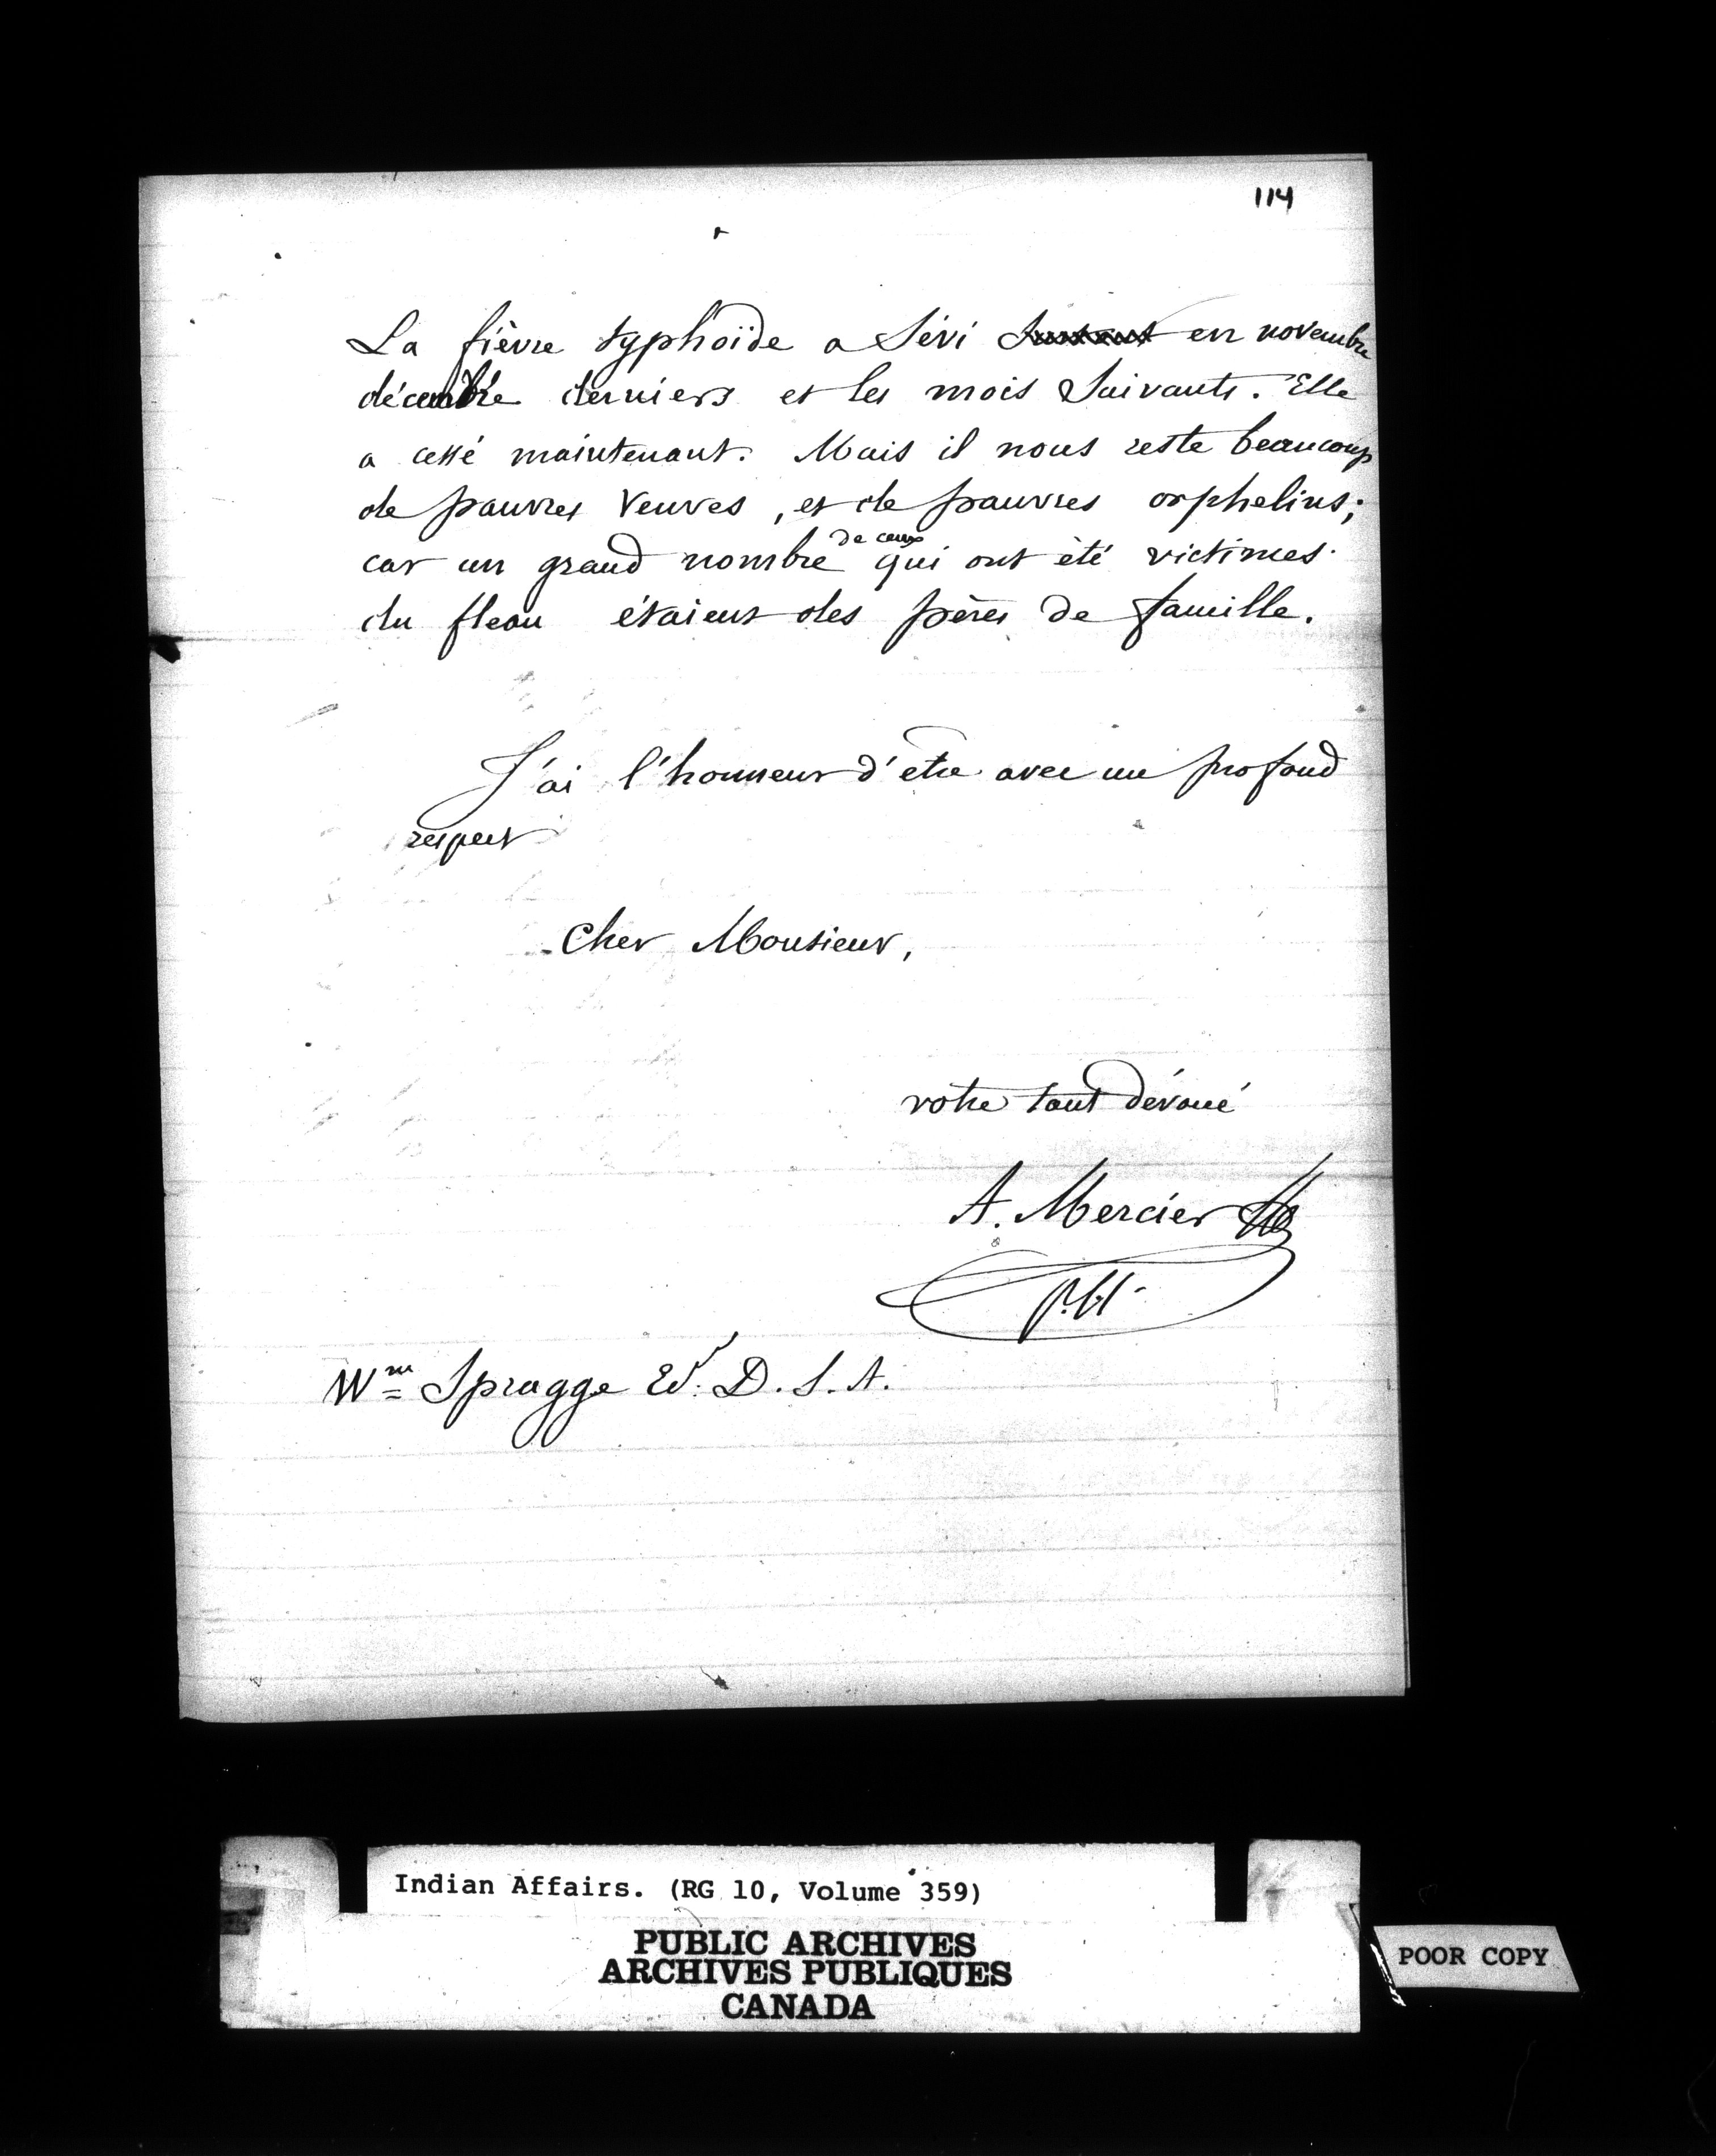 114
La fièvre typhoïde a Sévi en novembre
décembre derniers et les mois Suivants. Elle
a cessé maintenant. Mais il nous reste beaucoup
de pauvres Veuves, et de pauvres orphelins;
car un grand nombre de ceux qui ont été victimes
du fleau étaient des pères de famille.
J'ai l'honneur d'etre avec un profond
respect
Cher Monsieur,
votre tout dévoué
A. Mercier
Wm Spragge D. S. A.
Indian Affairs. (RG 10, Volume 359)
PUBLIC ARCHIVES
ARCHIVES PUBLIQUES
CANADA
POOR COPY